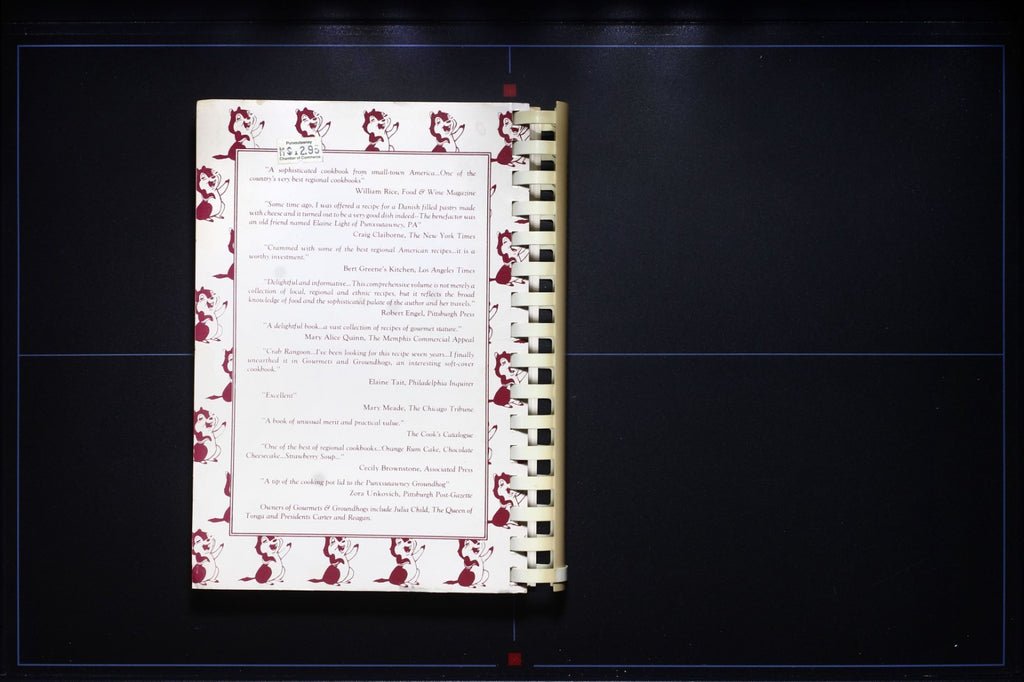 Punxsutawney
$12.95
Chamber of Commerce
"A sophisticated cookbook from small-town America...One of the
country's very best regional cookbooks"
William Rice, Food & Wine Magazine
"Some time ago, I was offered a recipe for a Danish filled pastry made
with cheese and it turned out to be a very good dish indeed--The benefactor was
an old friend named Elaine Light of Punxsutawney, PA"
Craig Claiborne, The New York Times
"Crammed with some of the best regional American recipes...it is a
worthy investment."
Bert Greene's Kitchen, Los Angeles Times
"Delightful and informative... This comprehensive volume is not merely a
collection of local, regional and ethnic recipes, but it reflects the broad
knowledge of food and the sophisticated palate of the author and her travels."
Robert Engel, Pittsburgh Press
"A delightful book...a vast collection of recipes of gourmet stature."
Mary Alice Quinn, The Memphis Commercial Appeal
"Crab Rangoon...I've been looking for this recipe seven years...I finally
unearthed it in Gourmets and Groundhogs, an interesting soft-cover
cookbook."
Elaine Tait, Philadelphia Inquirer
"Excellent"
Mary Meade, The Chicago Tribune
"A book of unusual merit and practical value."
The Cook's Catalogue
"One of the best of regional cookbooks...Orange Rum Cake, Chocolate
Cheesecake...Strawberry Soup..."
Cecily Brownstone, Associated Press
"A tip of the cooking pot lid to the Punxsutawney Groundhog"
Zora Unkovich, Pittsburgh Post-Gazette
Owners of Gourmets & Groundhogs include Julia Child, The Queen of
Tonga and Presidents Carter and Reagan.